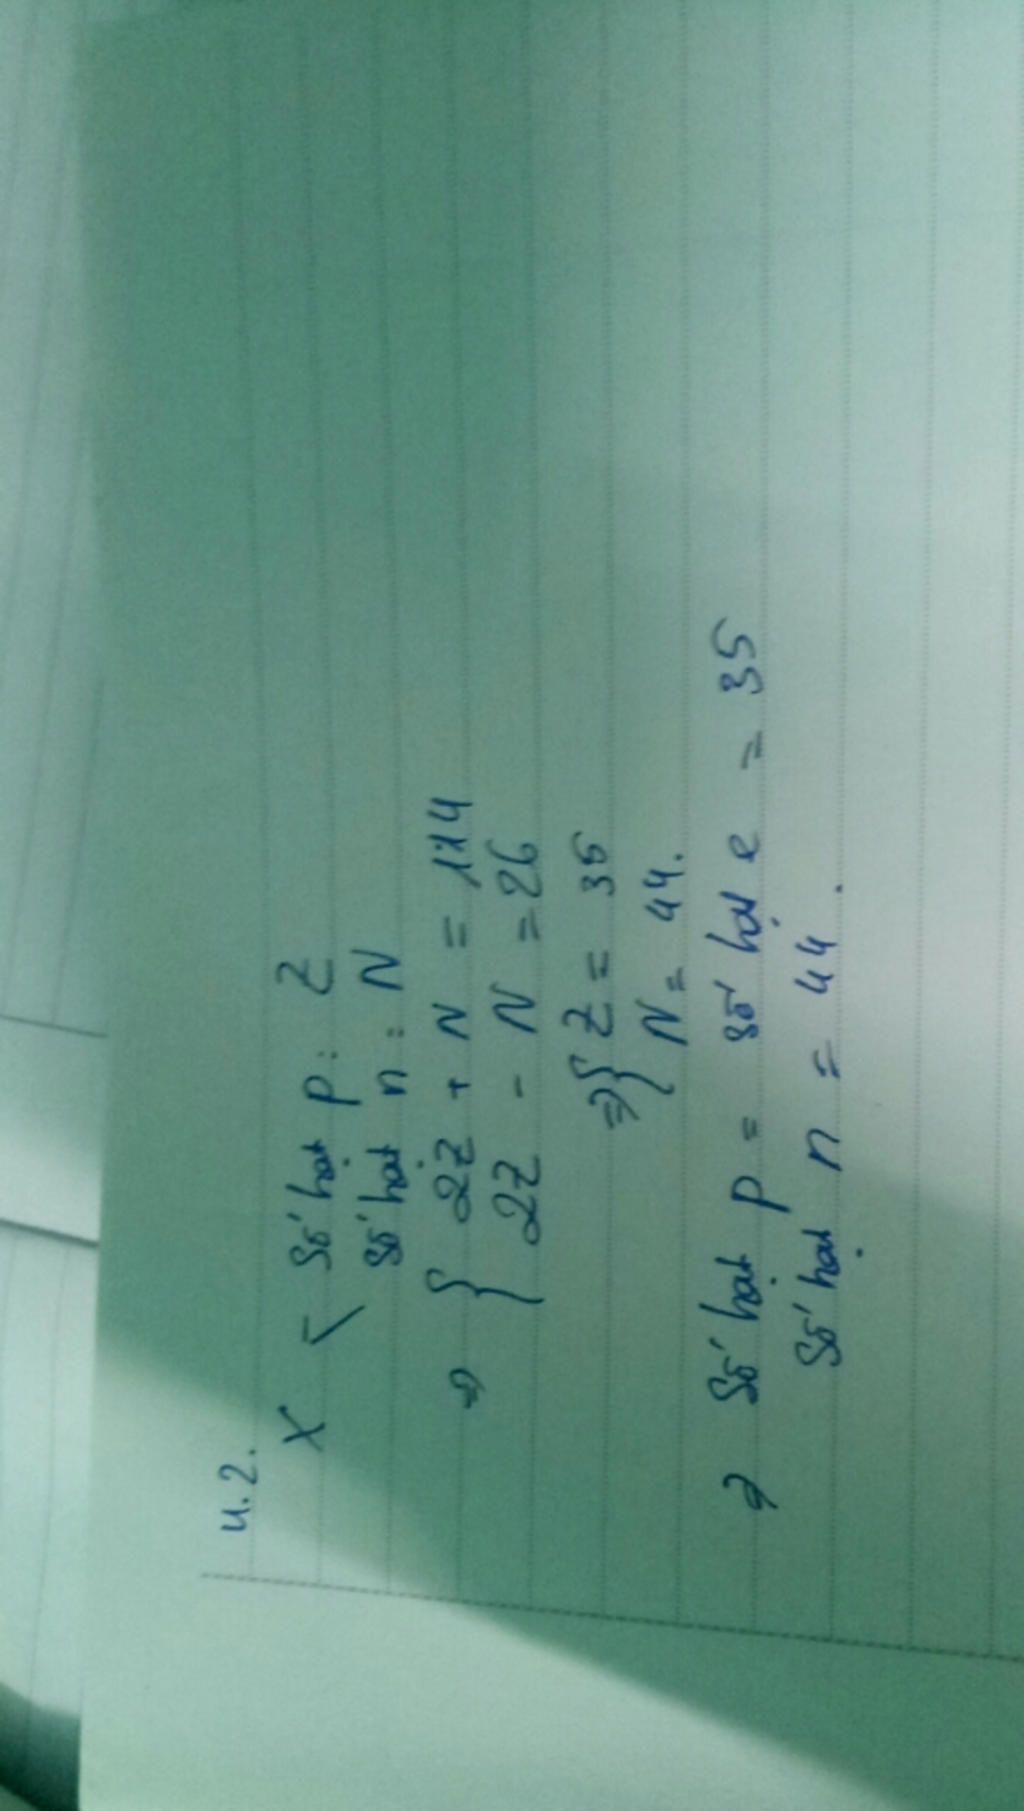 4.2.
X < Số hạt p: Z
Số hạt n: N
=> { 2Z + N = 114
2Z - N = 26
=> { Z = 35
N = 44.
=> Số hạt p = số hạt e = 35
Số hạt n = 44.